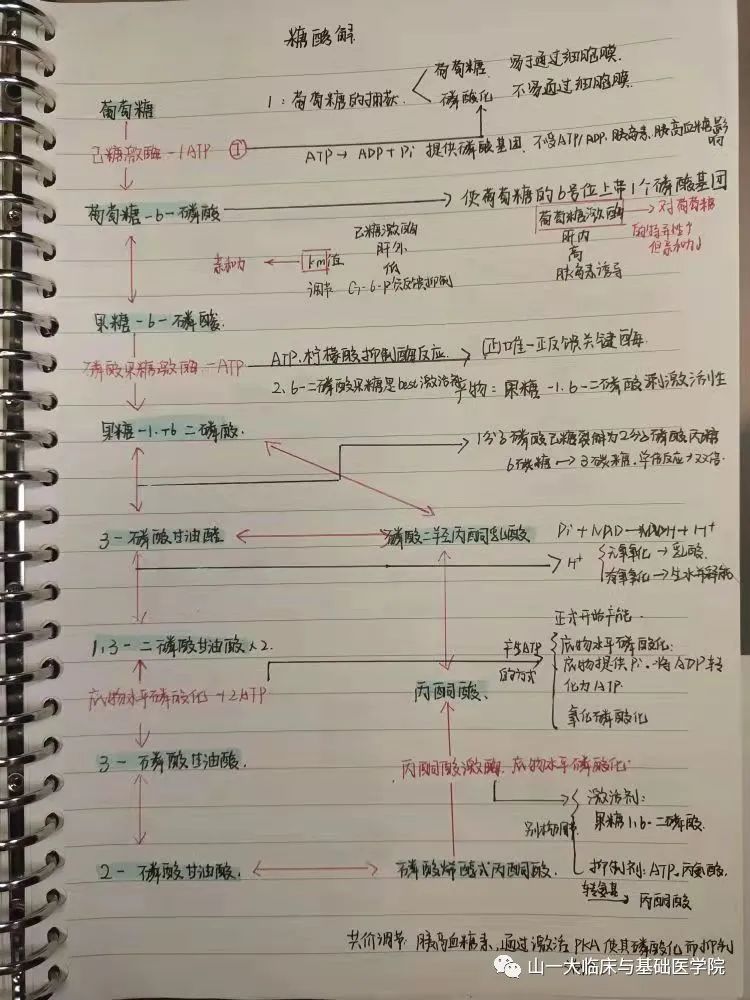 糖酵解
葡萄糖 易于通过细胞膜.
1：葡萄糖的捕获
磷酸化 不易通过细胞膜.
葡萄糖
己糖激酶 -1ATP ①
ATP → ADP + Pi 提供磷酸基团. 不受ATP/ADP, 胰岛素, 胰高血糖影响
葡萄糖-6-磷酸
使葡萄糖的6号位上带1个磷酸基团
己糖激酶
葡萄糖激酶 → 对葡萄糖
肝外
肝内
的特异性↑
亲和力 ← km值
低
高
但亲和力↓
调节 G-6-P负反馈抑制
胰岛素诱导
果糖-6-磷酸.
磷酸果糖激酶 -ATP
ATP.柠檬酸抑制酶反应.
唯一正反馈关键酶.
2.6-二磷酸果糖是best激活剂
产物：果糖-1.6-二磷酸刺激活性
果糖-1.6二磷酸.
1分子磷酸己糖裂解为2分子磷酸丙糖
6碳糖 → 3碳糖.
3-磷酸甘油醛
磷酸二羟丙酮
Pi + NAD → NADH + H⁺
H⁺
无氧氧化 → 乳酸.
有氧氧化 → 生水并释能
1,3-二磷酸甘油酸×2.
正式开始产能.
产生ATP
的方式
底物水平磷酸化:
底物提供Pi.将ADP转
化为ATP
氧化磷酸化
底物水平磷酸化 +2ATP
丙酮酸.
3-磷酸甘油酸.
丙酮酸激酶. 底物水平磷酸化.
别构调节
激活剂:
果糖1,6-二磷酸.
2-磷酸甘油酸.
磷酸烯醇式丙酮酸.
抑制剂: ATP.丙氨酸.
转氨基
丙酮酸
共价调节: 胰高血糖素.通过激活PKA使其磷酸化而抑制
山一大临床与基础医学院